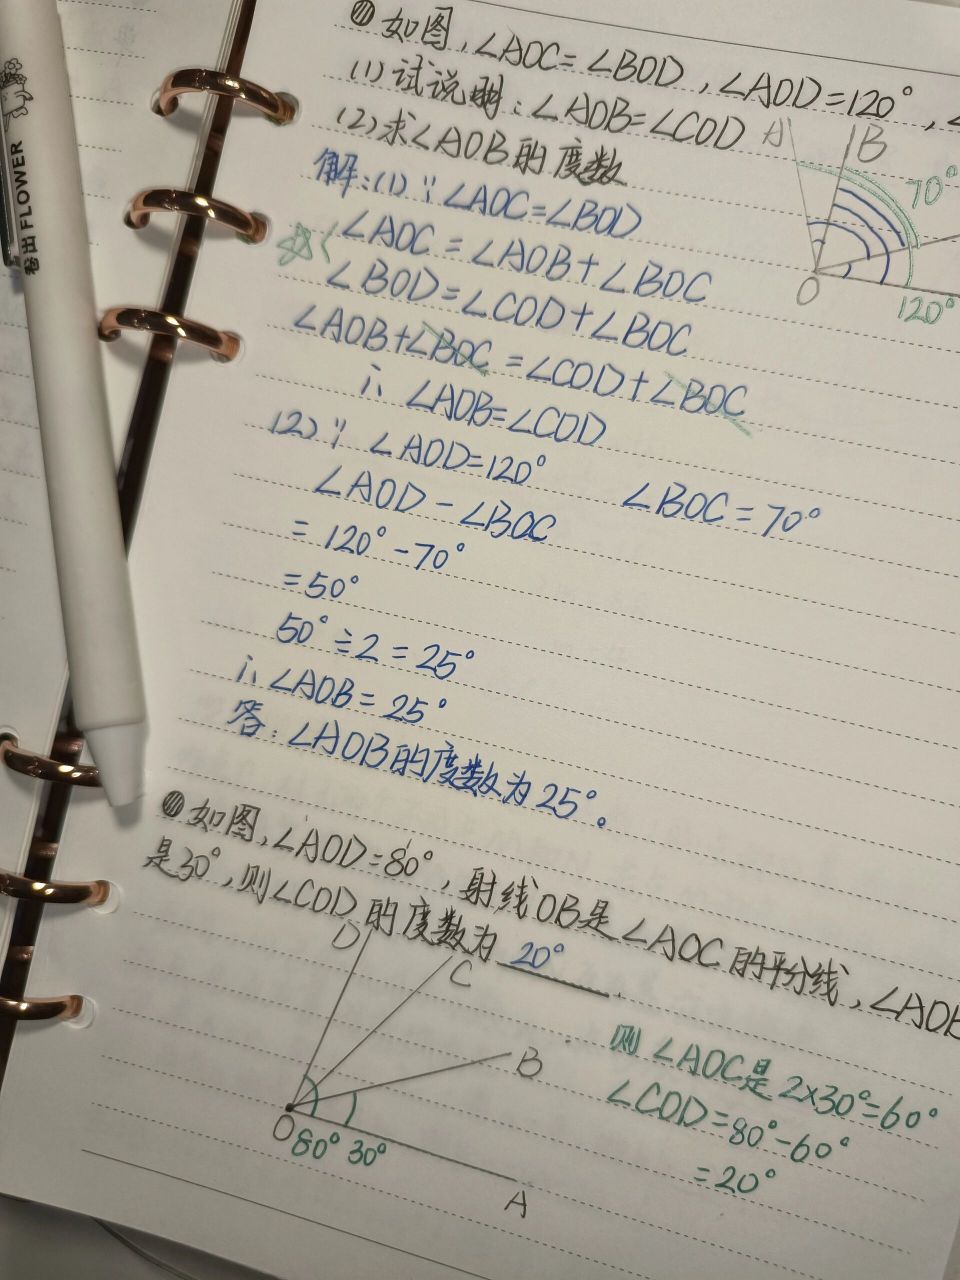 如图,∠AOC=∠BOD,∠AOD=120°,∠
(1)试说明:∠AOB=∠COD
(2)求∠AOB的度数
A
B
70°
O
120°
解:(1)∵∠AOC=∠BOD
∠AOC=∠AOB+∠BOC
∠BOD=∠COD+∠BOC
∠AOB+∠BOC=∠COD+∠BOC
∴∠AOB=∠COD
(2)∵∠AOD=120° ∠BOC=70°
∠AOD-∠BOC
=120°-70°
=50°
50°÷2=25°
∴∠AOB=25°
答:∠AOB的度数为25°。
如图,∠AOD=80°,射线OB是∠AOC的平分线,∠AOB
是30°,则∠COD的度数为20°
D
C
B
O
80° 30°
A
则∠AOC是2×30°=60°
∠COD=80°-60°
=20°
卷出FLOWER